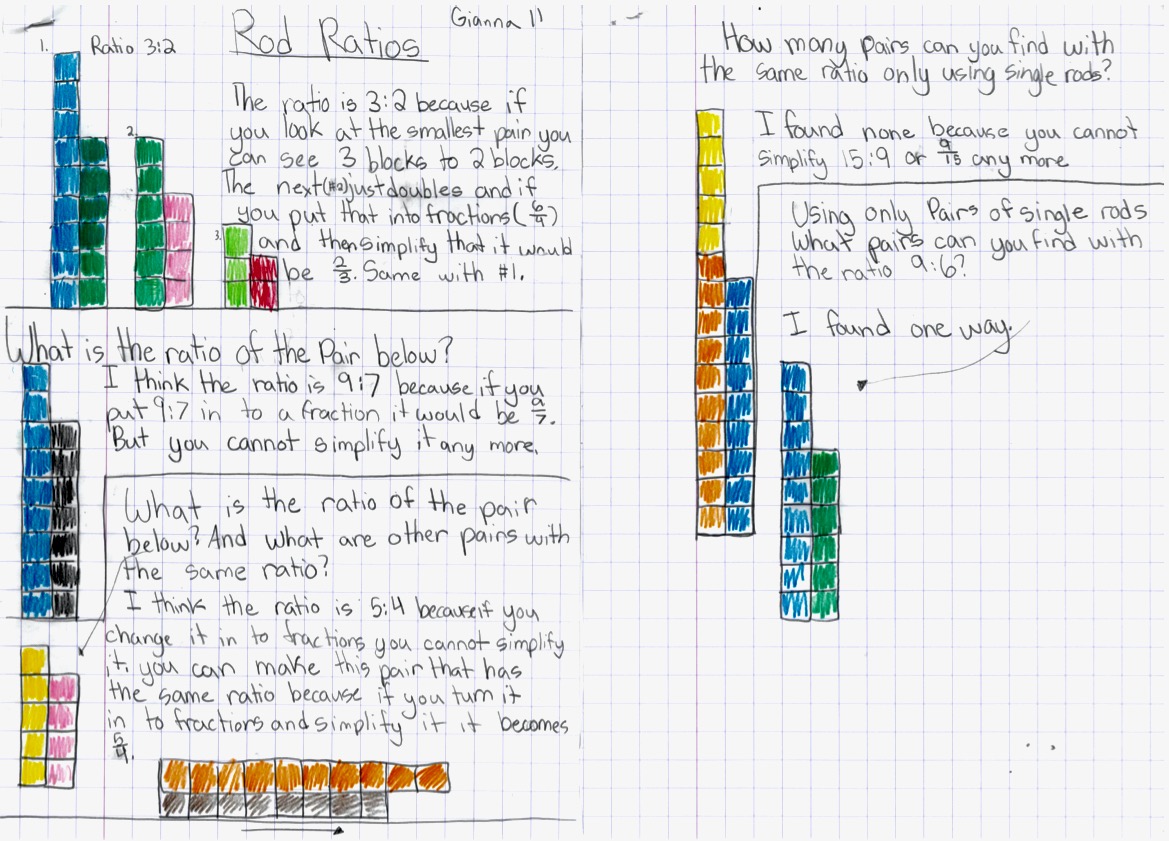 Gianna 11
Rod Ratios
1. Ratio 3:2
2.
3.
The ratio is 3:2 because if
you look at the smallest pair you
can see 3 blocks to 2 blocks.
The next (#2) just doubles and if
you put that into fractions (6/4)
and then simplify that it would
be 2/3. Same with #1.
What is the ratio of the Pair below?
I think the ratio is 9:7 because if you
put 9:7 in to a fraction it would be 9/7.
But you cannot simplify it any more.
What is the ratio of the pair
below? And what are other pairs with
the same ratio?
I think the ratio is 5:4 because if you
change it in to fractions you cannot simplify
it. you can make this pair that has
the same ratio because if you turn it
in to fractions and simplify it it becomes
5/4.
How many pairs can you find with
the same ratio only using single rods?
I found none because you cannot
simplify 15:9 or 9/15 any more
Using only Pairs of single rods
What pairs can you find with
the ratio 9:6?
I found one way.